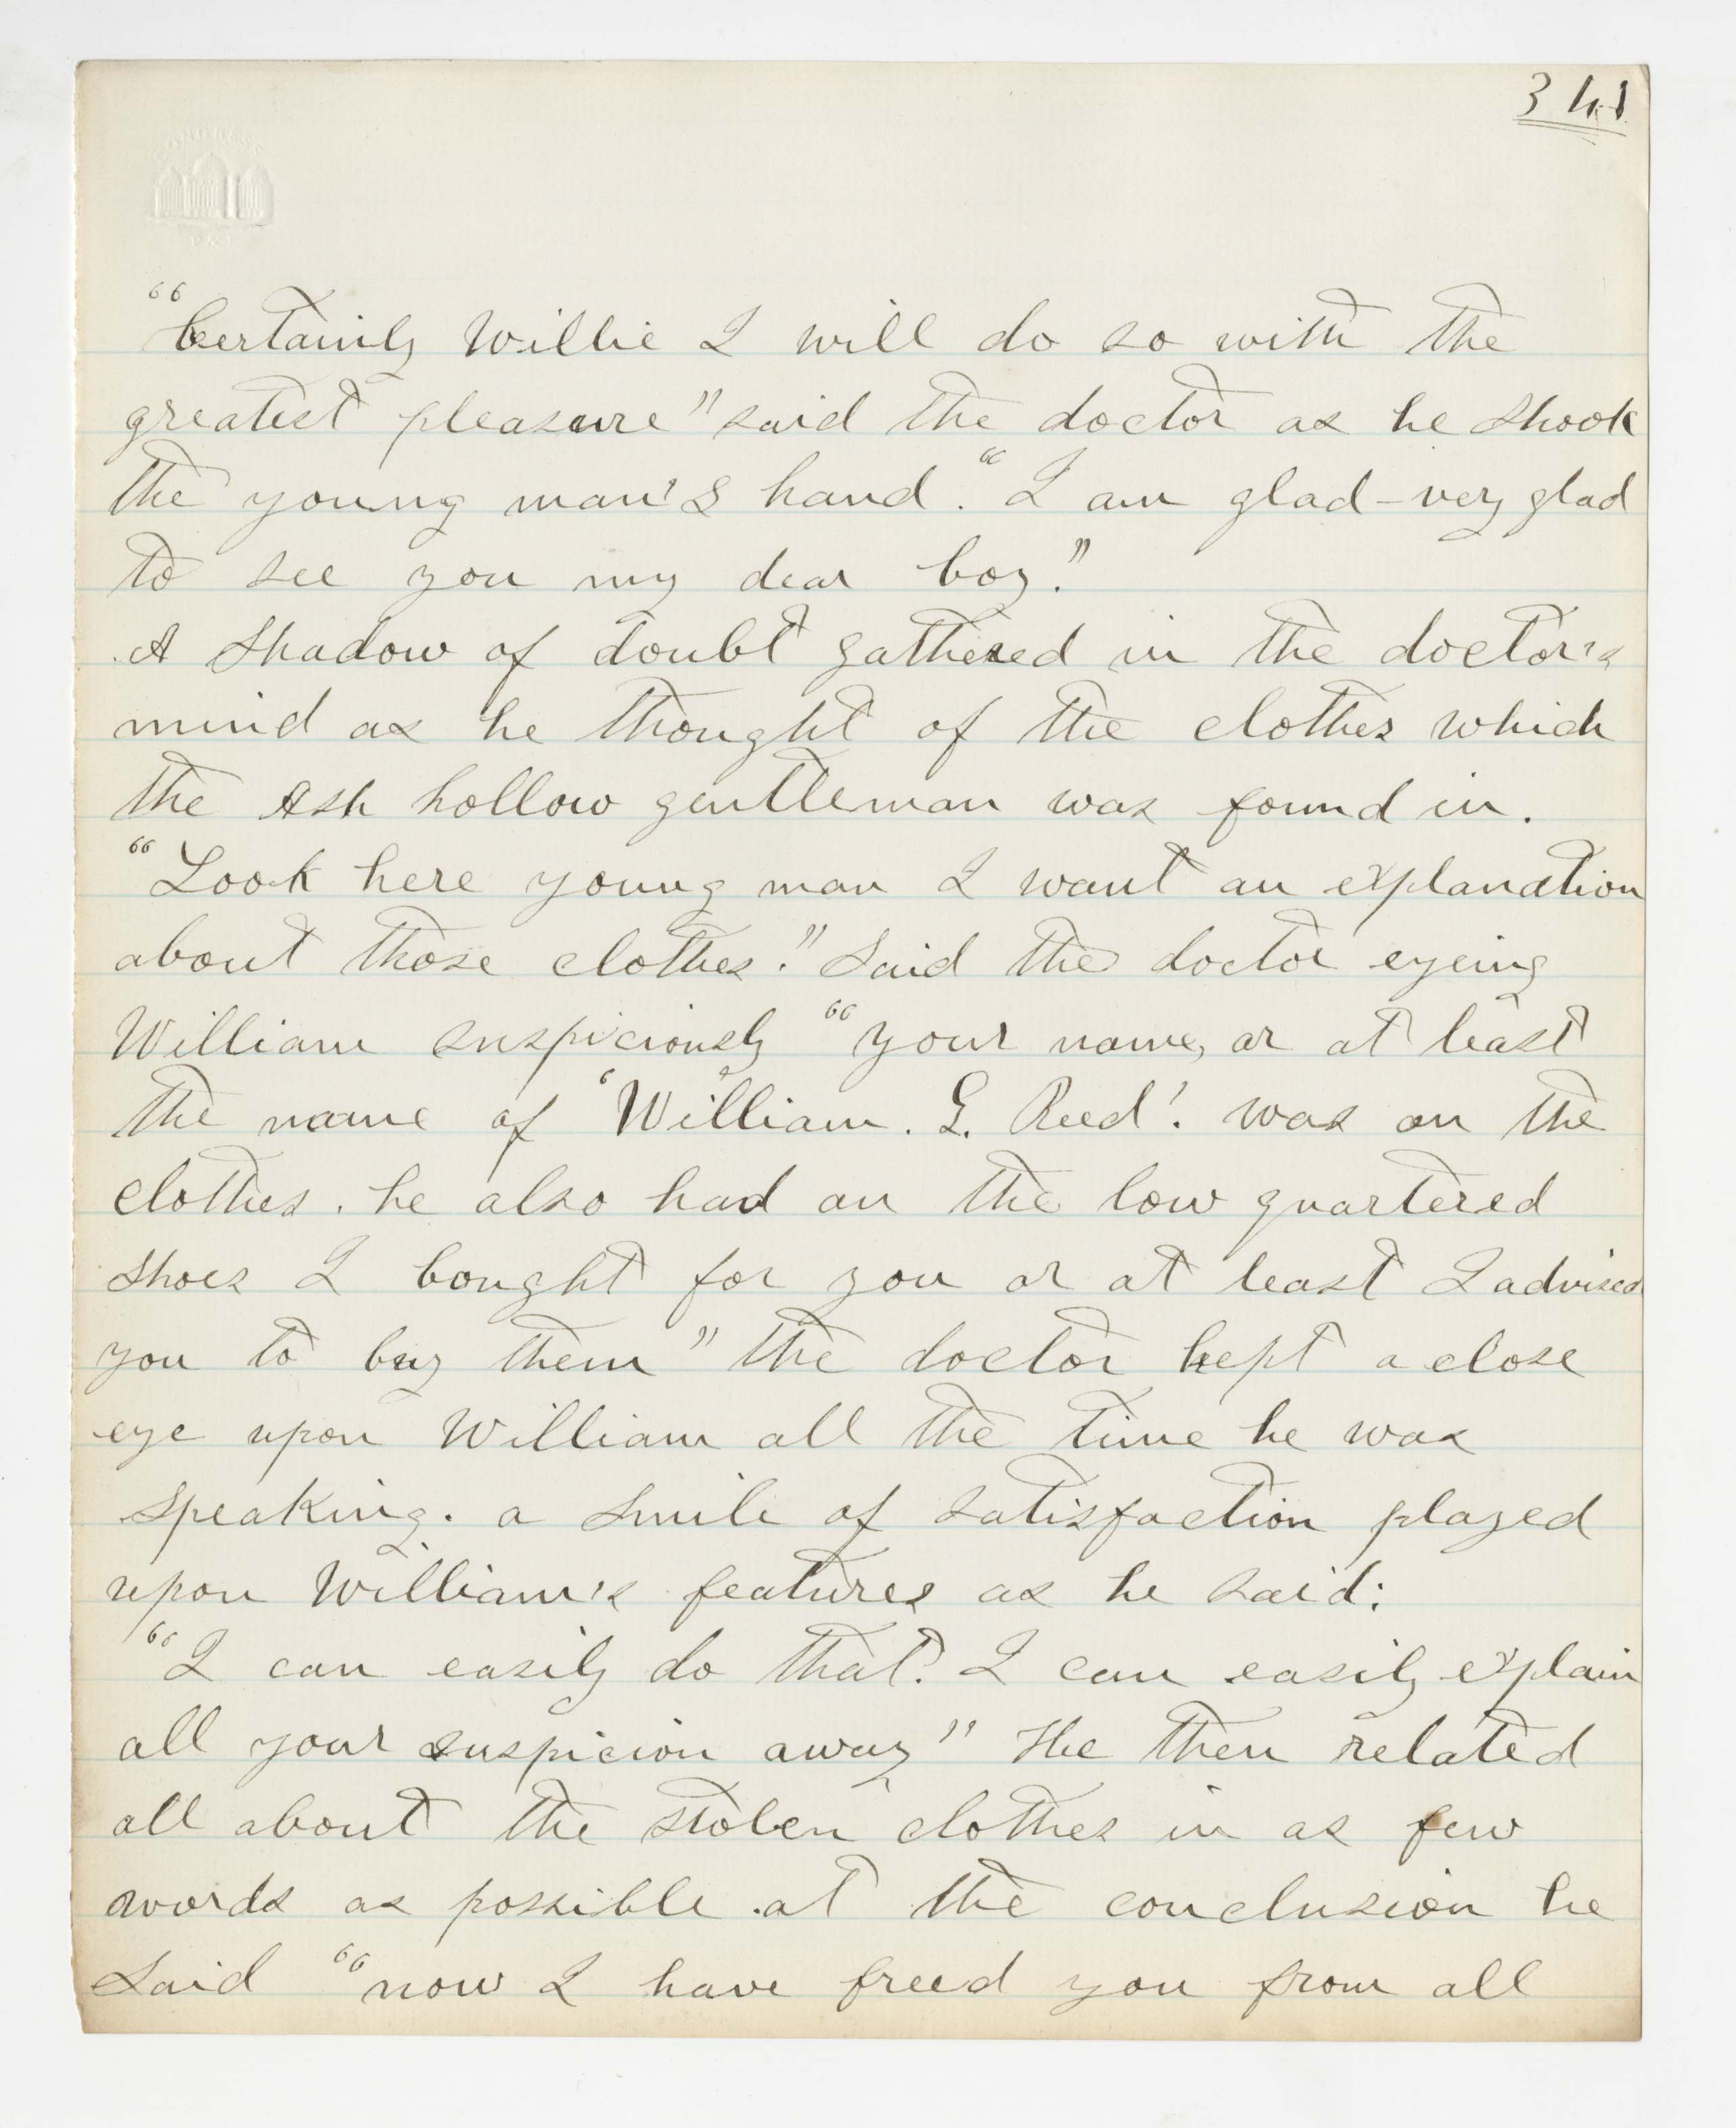 341
"Certainly Willie I will do so with the
greatest pleasure" said the doctor as he shook
the young man's hand. "I am glad - very glad
to see you my dear boy."
A shadow of doubt gathered in the doctor's
mind as he thought of the clothes which
the Ash hollow gentleman was found in.
"Look here young man I want an explanation
about those clothes." Said the doctor eyeing
William suspiciously "your name, or at least
the name of 'William. G. Reed'. was on the
clothes. he also had on the low quartered
shoes I bought for you or at least I advised
you to buy them" the doctor kept a close
eye upon William all the time he was
speaking. a smile of satisfaction played
upon William's features as he said:
"I can easily do that. I can easily explain
all your suspicion away" He then related
all about the stolen clothes in as few
words as possible. at the conclusion he
said "now I have freed you from all